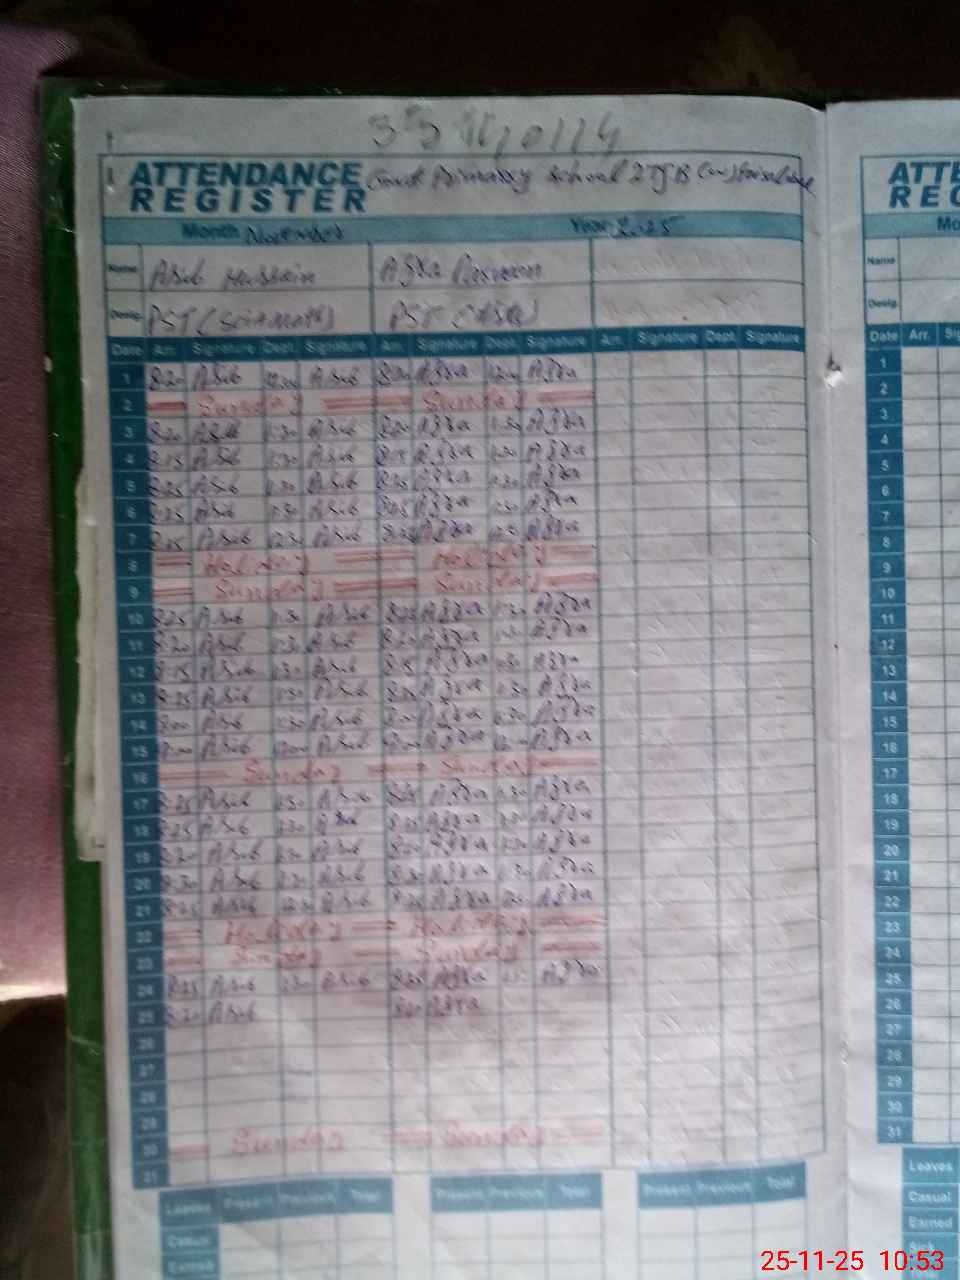 ATTENDANCE REGISTER Govt Primary School
Month November Year 2025
Name Asib Hussain Azra Parveen
Desig. PST (Sci+Math) PST
Date Arr. Signature Dept. Signature Arr. Signature Dept. Signature Arr. Signature Dept. Signature
1 8:20 Asib 12:00 Asib Azra Azra
2 Sunday Sunday
3 8:20 Asib 1:30 Asib 8:20 Azra 1:30 Azra
4 8:15 Asib 1:30 Asib 8:15 Azra 1:30 Azra
5 8:25 Asib 1:30 Asib 8:25 Azra 1:30 Azra
6 8:25 Asib 1:30 Asib 8:25 Azra 1:30 Azra
7 8:25 Asib 12:30 Asib Azra Azra
8 Holiday Holiday
9 Sunday Sunday
10 8:25 Asib 1:30 Asib 8:25 Azra 1:30 Azra
11 8:20 Asib 1:30 Asib 8:20 Azra 1:30 Azra
12 8:15 Asib 1:30 Asib 8:15 Azra 1:30 Azra
13 8:25 Asib 1:30 Asib 8:25 Azra 1:30 Azra
14 8:00 Asib 1:30 Asib 8:00 Azra Azra
15 Asib Asib Azra Azra
16 Sunday Sunday
17 8:25 Asib 1:30 Asib 8:25 Azra 1:30 Azra
18 8:25 Asib 1:30 Asib 8:25 Azra 1:30 Azra
19 8:20 Asib 1:30 Asib 8:20 Azra 1:30 Azra
20 8:30 Asib 1:30 Asib 8:30 Azra 1:30 Azra
21 8:25 Asib 12:30 Asib 8:25 Azra Azra
22 Holiday Holiday
23 Sunday Sunday
24 8:25 Asib 1:30 Asib 8:25 Azra Azra
25 8:20 Asib 8:20 Azra
26
27
28
29
30 Sunday Sunday
31
Leaves Present Previous Total Present Previous Total Present Previous Total
Casual
Earned
ATTE
REG
Mo
Name
Desig.
Date Arr. Sig
1
2
3
4
5
6
7
8
9
10
11
12
13
14
15
16
17
18
19
20
21
22
23
24
25
26
27
28
29
30
31
Leaves
Casual
Earned
Sick
25-11-25 10:53